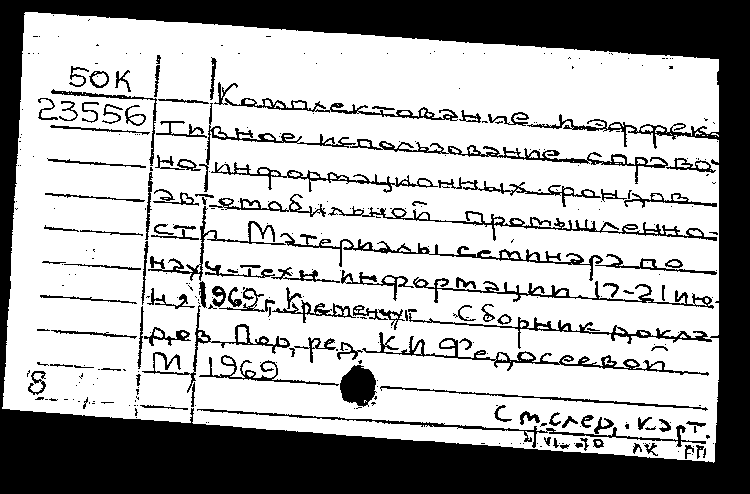 50К
23556
Комплектование и эффек-
тивное использование справоч-
но-информационных фондов
автомобильной промышленно-
сти Материалы семинара по
науч-техн информации. 17-21 ию-
ня 1969 г, Кременчуг. Сборник докла-
дов. Под ред. К.И Федосеевой
М 1969
8
См.след. карт.
VI-70 ЛК РП